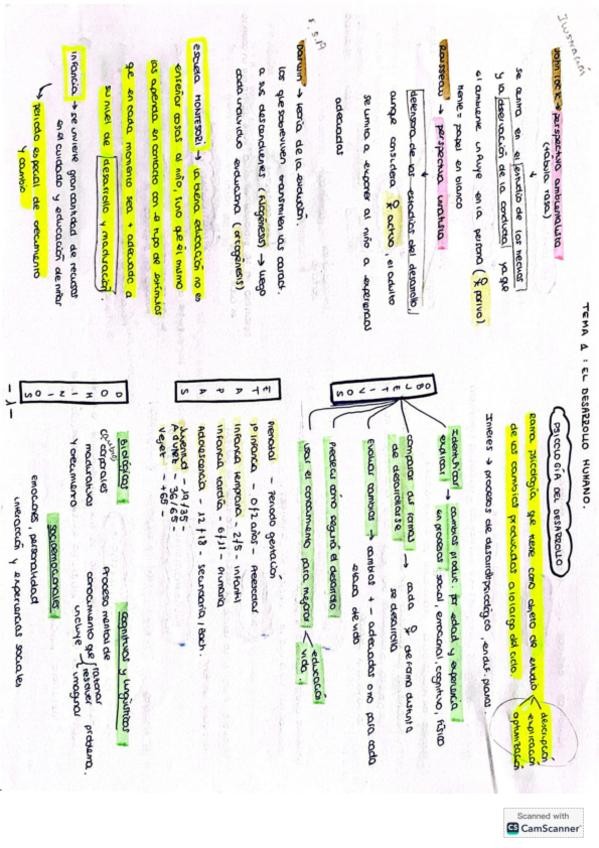 TEMA 1: EL DESARROLLO HUMANO.
PSICOLOGÍA DEL DESARROLLO
Rama psicología que tiene como objeto de estudio
de los cambios producidos a lo largo del ciclo.
descripción
explicación
optimización
Interés → procesos de desarrollo psicológico, en dif. planos.
OBJETIVOS
Identificar y explicar → cambios produc. por edad y experiencia
en procesos social, emocional, cognitivo, físico
comparar las formas de desarrollarse → cada de forma distinta
se desarrolla
Evaluar cambios → cambios + - adecuados o no para cada
etapa de vida
Predecir cómo seguirá el desarrollo
usar el conocimiento para mejorar
educación
vida.
ETAPAS
Prenatal - Periodo gestación
1ª infancia - 0/2 años - Preescolar
Infancia temprana - 2/5 - infantil
Infancia tardía - 6/11 - Primaria
Adolescencia - 12/18 - secundaria, bach.
Juventud - 19/35 -
Adultez - 36/65 -
Vejez - +65 -
DOMINIOS
Biológicos
cambios
corporales
madurativos
y crecimiento
cognitivos y lingüísticos
Proceso mental de
conocimiento que
incluye
razonar
resolver problema.
imaginar
socioemocionales
emociones, personalidad
interacción y experiencias sociales
-1-
Ilustración
John Locke → perspectiva ambientalista
(tabula rasa)
se centra en el estudio de los hechos
y la observación de la conducta, ya que
el ambiente influye en la persona (pasivo)
mente = papel en blanco
Rousseau → perspectiva innatista
defensora de los estadios del desarrollo,
aunque considera activo, el adulto
se limita a exponer al niño a experiencias
adecuadas
Darwin → teoría de la evolución.
los que sobreviven transmiten las caract.
a sus descendientes (filogénesis) → luego
cada individuo evoluciona (ontogénesis)
escuela MONTESSORI → la buena educación no es
enseñar cosas al niño, sino que él mismo
las aprenda en contacto con e tipo de estímulos
que en cada momento sea + adecuado a
su nivel de desarrollo y maduración.
Infancia → se invierte gran cantidad de recursos
en el cuidado y educación de niños
período especial de crecimiento
y cambio
Scanned with
CS CamScanner